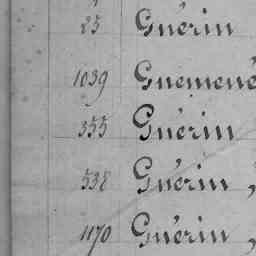 25 Guérin
1039 Guémené
355 Guérin
538 Guérin,
1170 Guérin,